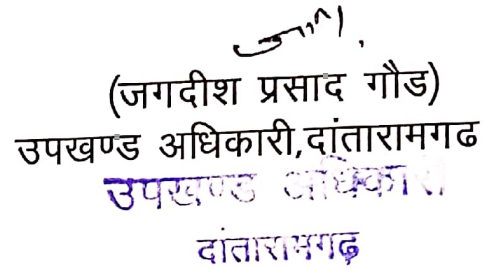 (जगदीश प्रसाद गौड)
उपखण्ड अधिकारी,दांतारामगढ
उपखण्ड अधिकारी
दांतारामगढ़